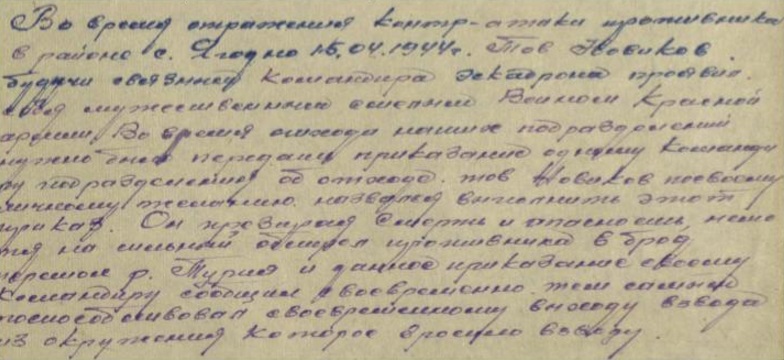 Во время отражения контр-атаки противника
в районе с. Ягодно 15.04.1944г. Тов Новиков
будучи связным командира эскадрона проявил
себя мужественным смелым Воином Красной
армии. Во время отхода наших подразделений
нужно было передать приказание одному команди
ру подразделения об отходе. тов Новиков по своему
личному желанию назвался выполнить этот
приказ. Он презирая смерть и опасность, несмо
тря на сильный обстрел противника в брод
перешол р. Турия и данное приказание своему
командиру сообщил своевременно тем самым
поспособствовал своевременному выходу взвода
из окружения которое грозило взводу.